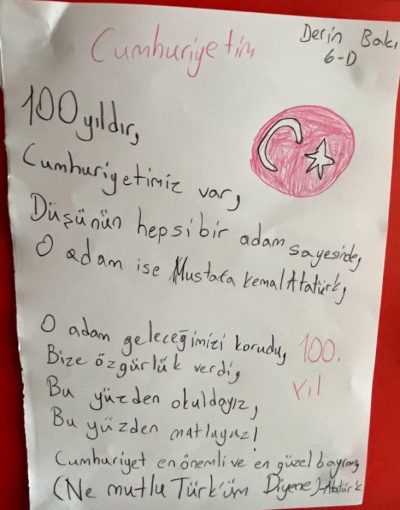 Cumhuriyetim
Derin Bakı
6-D
100 yıldır,
Cumhuriyetimiz var,
Düşünün hepsi bir adam sayesinde,
O adam ise Mustafa Kemal Atatürk,
O adam geleceğimizi korudu,
Bize özgürlük verdi,
Bu yüzden okuldayız,
Bu yüzden mutluyuz!
100.
Yıl
Cumhuriyet en önemli ve en güzel bayram,
(Ne mutlu Türk'üm Diyene)-Atatürk